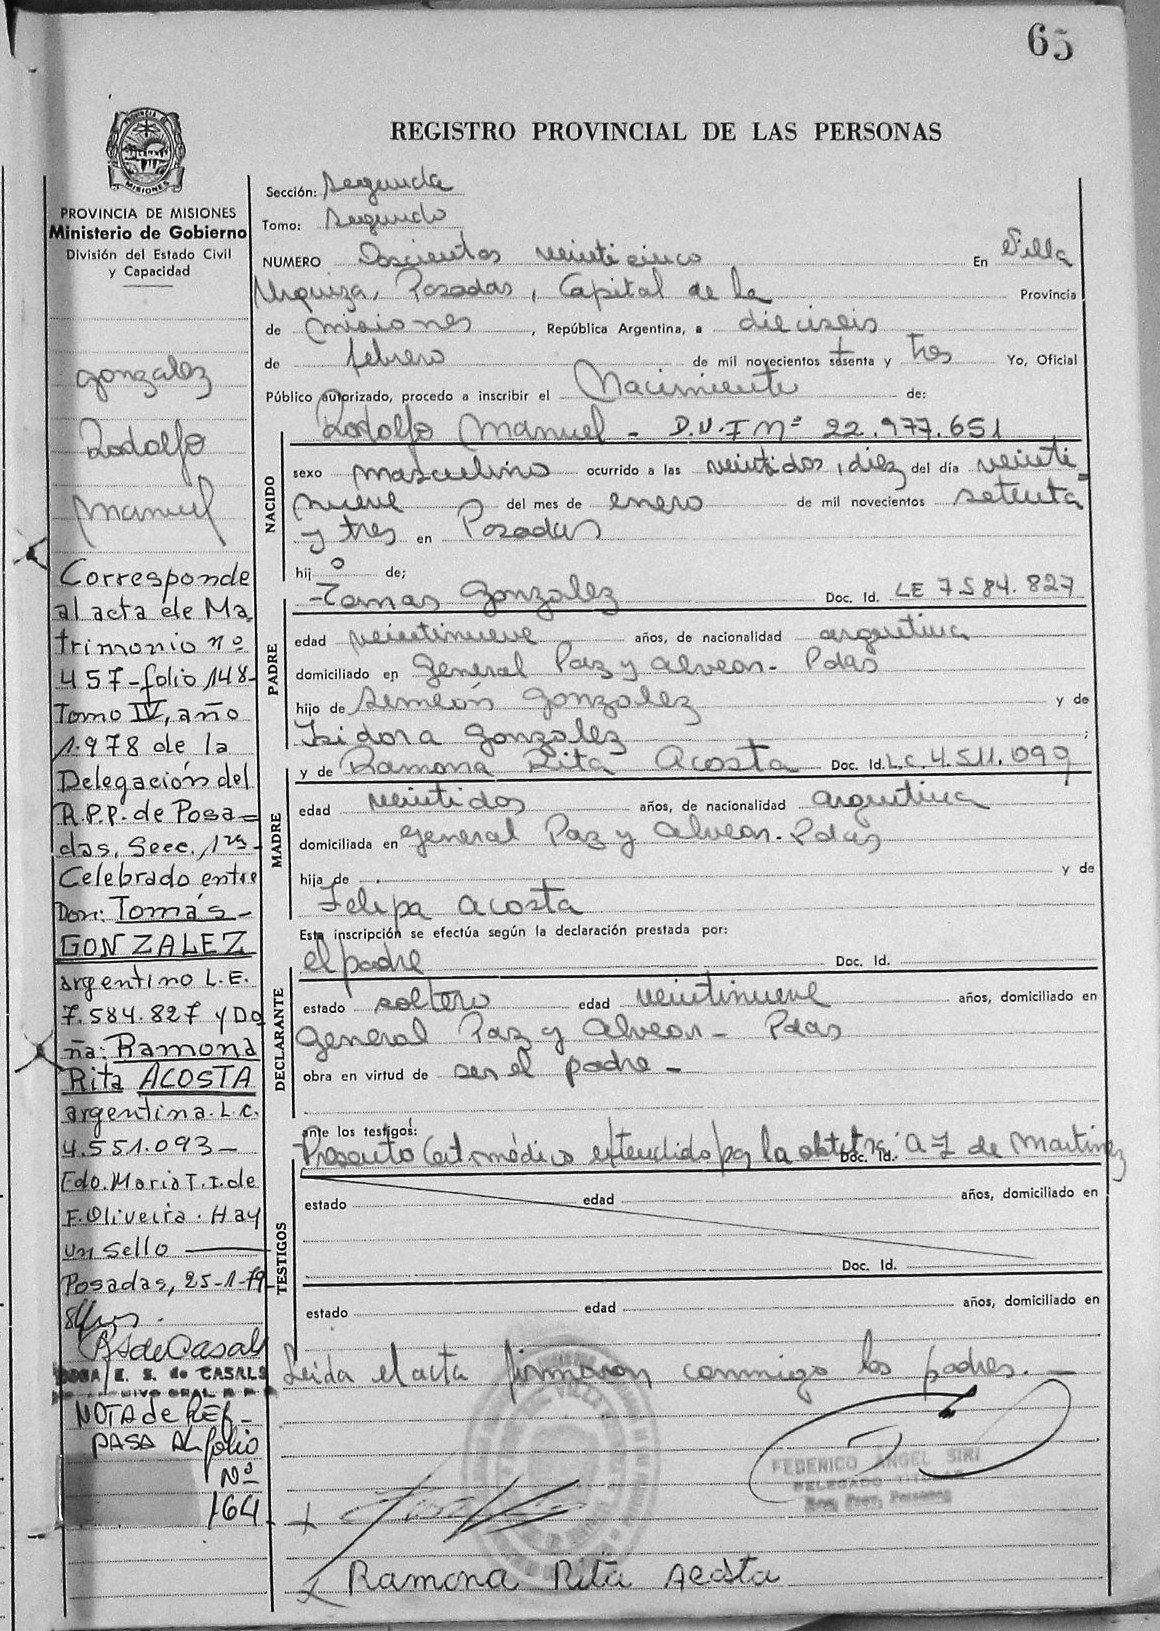 65
PROVINCIA DE
MISIONES
REGISTRO PROVINCIAL DE LAS PERSONAS
PROVINCIA DE MISIONES
Ministerio de Gobierno
División del Estado Civil
y Capacidad
gonzalez
Rodolfo
Manuel
Corresponde
al acta de Ma
trimonio nº
457-folio 148-
Tomo IV, año
1.978 de la
Delegación del
R.P.P. de Posa=
das, Secc. 1ra
Celebrado entre
Don: Tomás-
GONZALEZ
argentino L.E.
7.584.827 y Do
ña: Ramona
Rita ACOSTA
argentina. L.C.
4.551.093-
Fdo. Maria T. I. de
F. Oliveira. Hay
un sello
Posadas, 25-1-79
RS de Casals
ROSA E. S. de CASALS
NOTA de REF-
PASA AL folio
Nº
164
Sección: Segunda
Tomo: Segundo
NUMERO Doscientos veinticinco En Villa
Urquiza, Posadas, Capital de la Provincia
de Misiones, República Argentina, a dieciseis
de febrero de mil novecientos setenta y tres Yo, Oficial
Público autorizado, procedo a inscribir el Nacimiento de:
Rodolfo Manuel - D.U.I Nº 22.977.651
NACIDO
sexo masculino ocurrido a las veintidos, diez del día veinti=
nueve del mes de enero de mil novecientos setenta
y tres en Posadas
hij o de;
PADRE
-Tomas Gonzalez Doc. Id. LE 7.584.827
edad veintinueve años, de nacionalidad argentina
domiciliado en General Paz y Alvear- Pdas
hijo de Simeón Gonzalez y de
Isidora Gonzalez ;
MADRE
y de Ramona Rita Acosta Doc. Id. L.C. 4.511.099
edad veintidos años, de nacionalidad argentina
domiciliada en General Paz y Alvear- Pdas
hija de y de
Felipa Acosta
Esta inscripción se efectúa según la declaración prestada por:
DECLARANTE
el padre Doc. Id.
estado soltero edad veintinueve años, domiciliado en
General Paz y Alvear- Pdas
obra en virtud de ser el padre-
ante los testigos:
Presento Cert. médico extendido por la obtetra: A I de Martinez
Doc. Id.
TESTIGOS
estado edad años, domiciliado en
Doc. Id.
estado edad años, domiciliado en
Leida el acta firmaron conmigo los padres.-
FEDERICO ANGEL SIRI
DELEGADO TITULAR
Reg. Prov. Personas
Ramona Rita Acosta